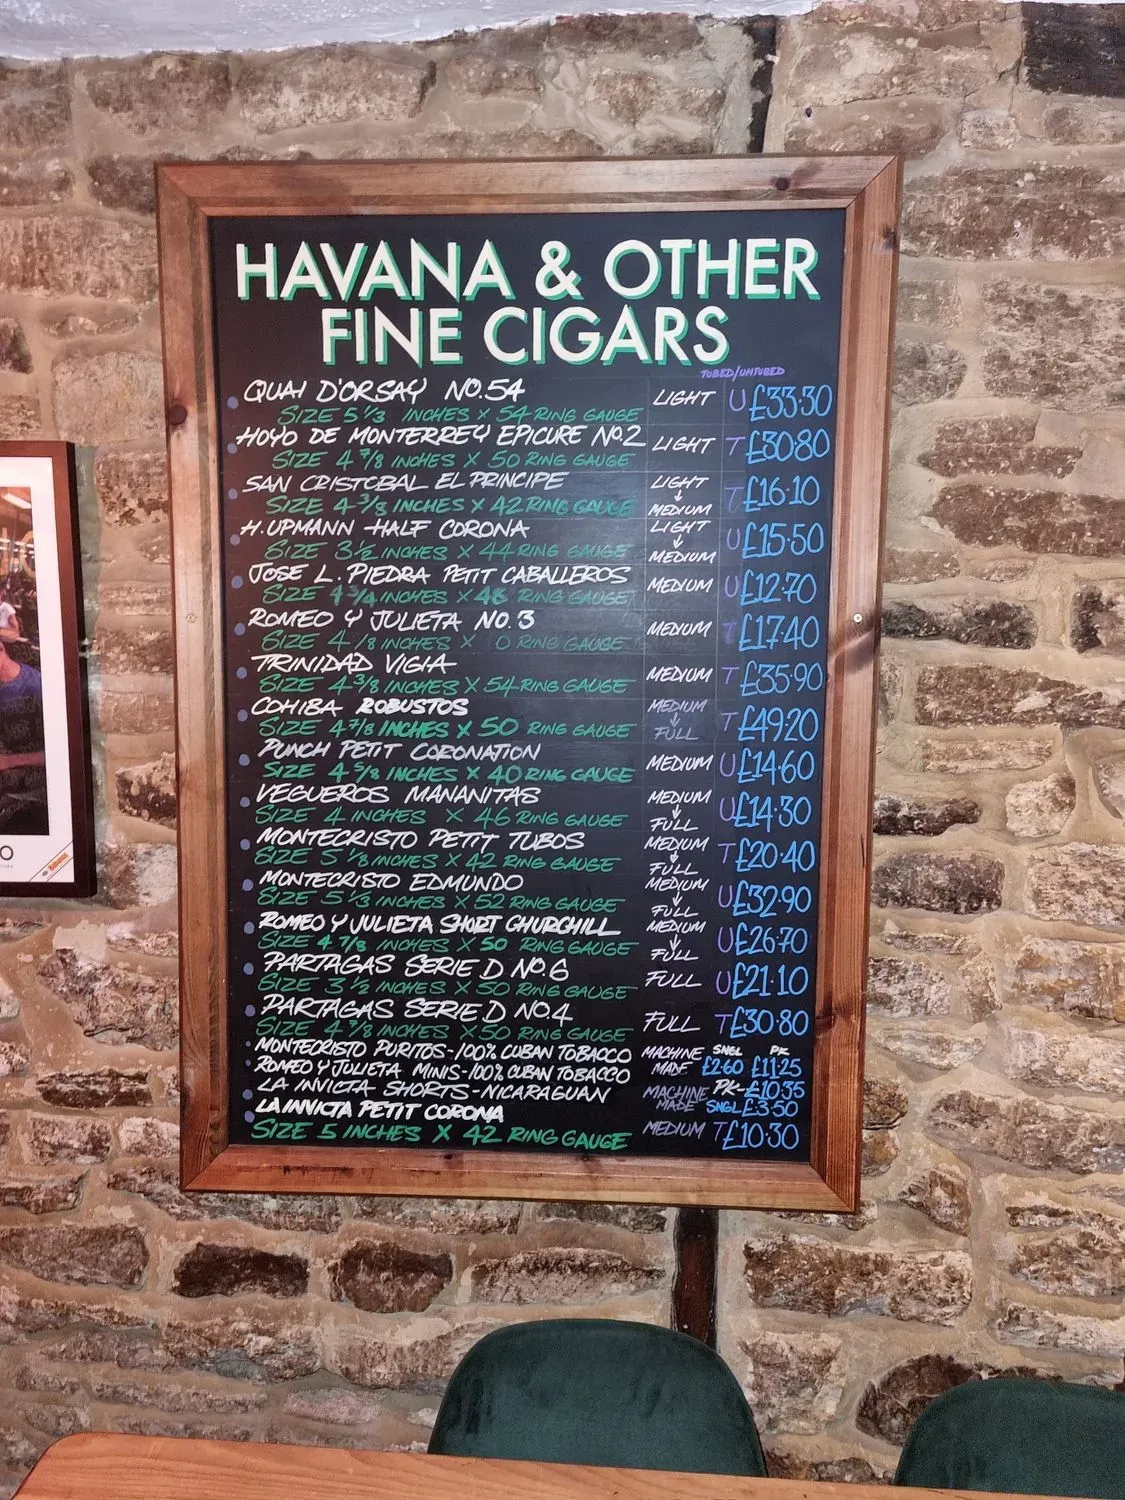 HAVANA & OTHER
FINE CIGARS
TUBED/UNTUBED
QUAI D'ORSAY NO.54 LIGHT U £33.30
SIZE 5 1/3 INCHES X 54 RING GAUGE
HOYO DE MONTERREY EPICURE NO.2 LIGHT T £30.80
SIZE 4 7/8 INCHES X 50 RING GAUGE
SAN CRISTOBAL EL PRINCIPE LIGHT ↓ MEDIUM T £16.10
SIZE 4 3/8 INCHES X 42 RING GAUGE
H. UPMANN HALF CORONA LIGHT ↓ MEDIUM U £15.50
SIZE 3 1/2 INCHES X 44 RING GAUGE
JOSE L. PIEDRA PETIT CABALLEROS MEDIUM U £12.70
SIZE 4 3/4 INCHES X 48 RING GAUGE
ROMEO Y JULIETA NO.3 MEDIUM T £17.40
SIZE 4 /8 INCHES X 0 RING GAUGE
TRINIDAD VIGIA MEDIUM T £35.90
SIZE 4 3/8 INCHES X 54 RING GAUGE
COHIBA ROBUSTOS MEDIUM ↓ FULL T £49.20
SIZE 4 7/8 INCHES X 50 RING GAUGE
PUNCH PETIT CORONATION MEDIUM U £14.60
SIZE 4 5/8 INCHES X 40 RING GAUGE
VEGUEROS MANANITAS MEDIUM ↓ FULL U £14.30
SIZE 4 INCHES X 46 RING GAUGE
MONTECRISTO PETIT TUBOS MEDIUM ↓ FULL T £20.40
SIZE 5 1/8 INCHES X 42 RING GAUGE
MONTECRISTO EDMUNDO MEDIUM ↓ FULL U £32.90
SIZE 5 1/3 INCHES X 52 RING GAUGE
ROMEO Y JULIETA SHORT CHURCHILL MEDIUM ↓ FULL U £26.70
SIZE 4 7/8 INCHES X 50 RING GAUGE
PARTAGAS SERIE D NO.6 FULL U £21.10
SIZE 3 1/2 INCHES X 50 RING GAUGE
PARTAGAS SERIE D NO.4 FULL T £30.80
SIZE 4 7/8 INCHES X 50 RING GAUGE
MONTECRISTO PURITOS-100% CUBAN TOBACCO MACHINE SNGL PK
ROMEO Y JULIETA MINIS-100% CUBAN TOBACCO MADE £2.60 £11.25
LA INVICTA SHORTS-NICARAGUAN MACHINE PK-£10.35
MADE SNGL £3.50
LA INVICTA PETIT CORONA MEDIUM T £10.30
SIZE 5 INCHES X 42 RING GAUGE